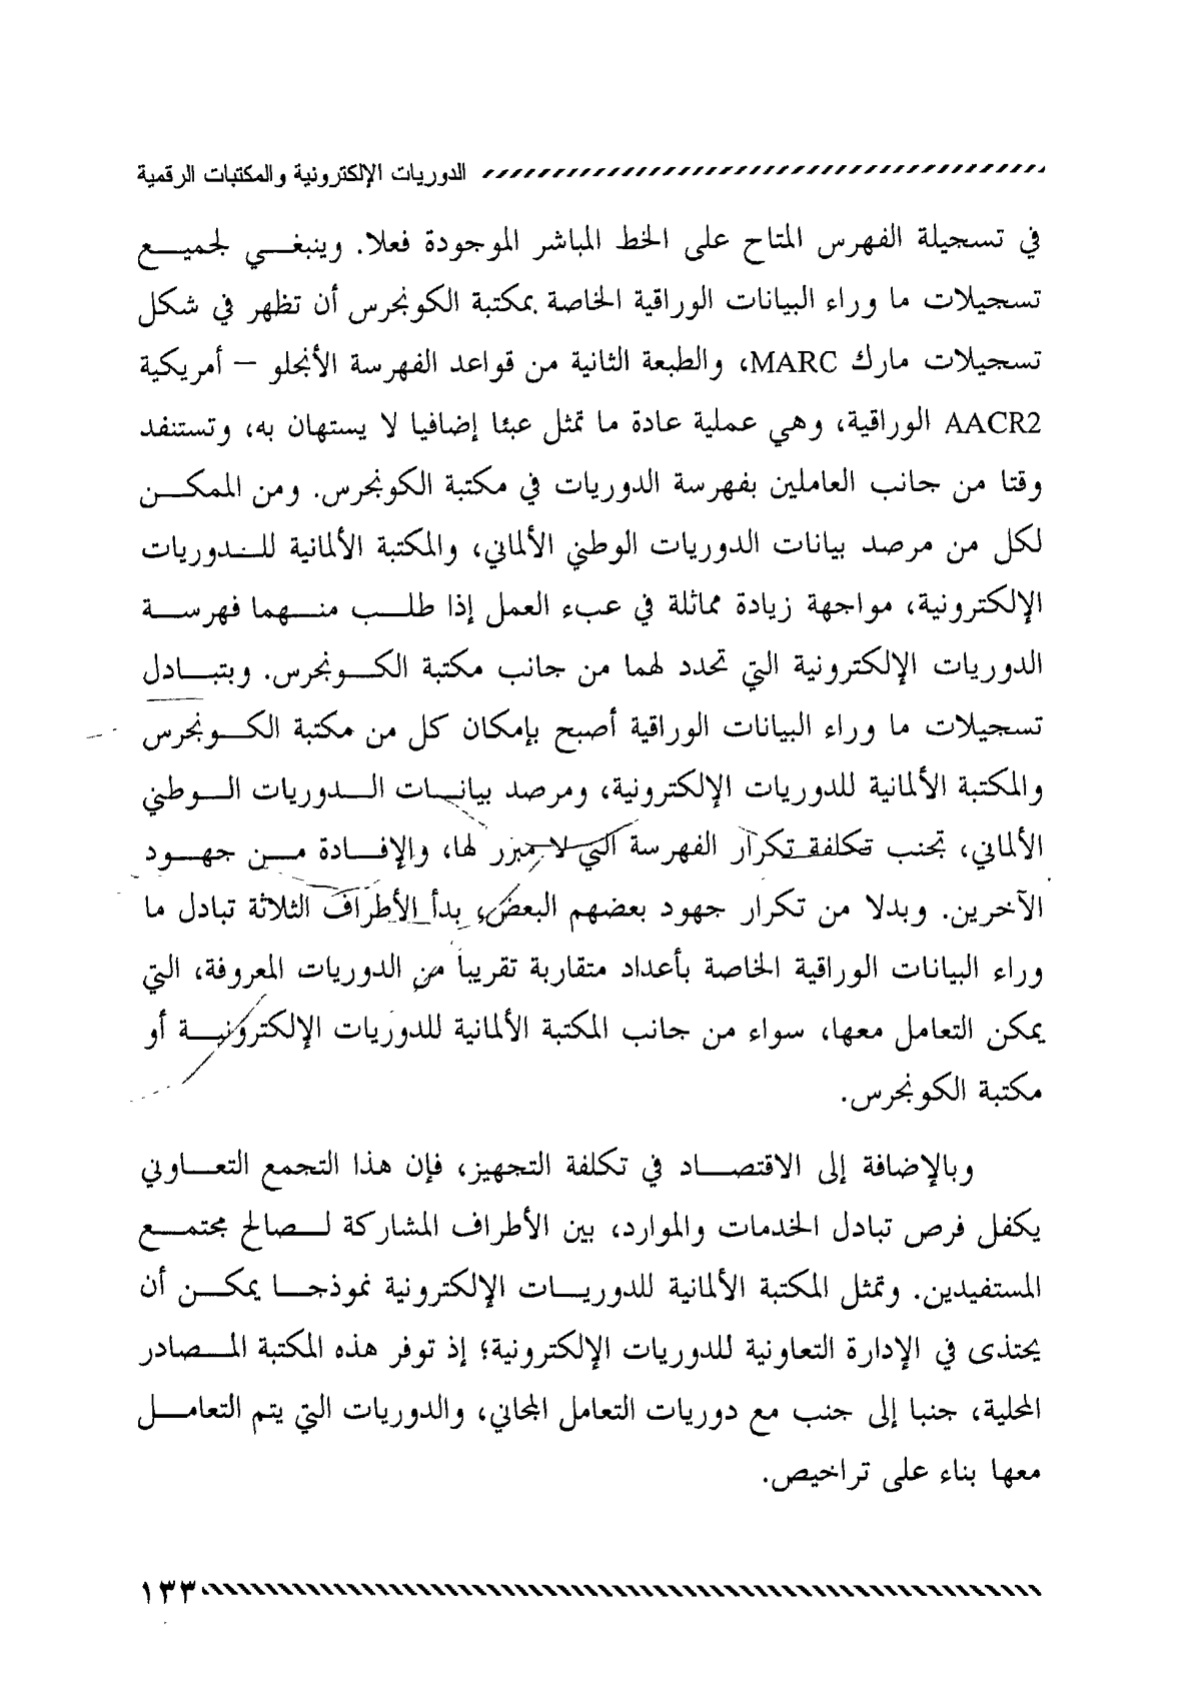 الدوريات الإلكترونية والمكتبات الرقمية
في تسجيلة الفهرس المتاح على الخط المباشر الموجودة فعلا. وينبغي لجميع
تسجيلات ما وراء البيانات الوراقية الخاصة بمكتبة الكونجرس أن تظهر في شكل
تسجيلات مارك MARC، والطبعة الثانية من قواعد الفهرسة الأنجلو – أمريكية
AACR2 الوراقية، وهي عملية عادة ما تمثل عبئا إضافيا لا يستهان به، وتستنفد
وقتا من جانب العاملين بفهرسة الدوريات في مكتبة الكونجرس. ومن الممكن
لكل من مرصد بيانات الدوريات الوطني الألماني، والمكتبة الألمانية للدوريات
الإلكترونية، مواجهة زيادة مماثلة في عبء العمل إذا طلب منهما فهرسة
الدوريات الإلكترونية التي تحدد لهما من جانب مكتبة الكونجرس. وبتبادل
تسجيلات ما وراء البيانات الوراقية أصبح بإمكان كل من مكتبة الكونجرس
والمكتبة الألمانية للدوريات الإلكترونية، ومرصد بيانات الدوريات الوطني
الألماني، تجنب تكلفة تكرار الفهرسة التي لا مبرر لها، والإفادة من جهود
الآخرين. وبدلا من تكرار جهود بعضهم البعض، بدأ الأطراف الثلاثة تبادل ما
وراء البيانات الوراقية الخاصة بأعداد متقاربة تقريبا من الدوريات المعروفة، التي
يمكن التعامل معها، سواء من جانب المكتبة الألمانية للدوريات الإلكترونية أو
مكتبة الكونجرس.
وبالإضافة إلى الاقتصاد في تكلفة التجهيز، فإن هذا التجمع التعاوني
يكفل فرص تبادل الخدمات والموارد، بين الأطراف المشاركة لصالح مجتمع
المستفيدين. وتمثل المكتبة الألمانية للدوريات الإلكترونية نموذجا يمكن أن
يحتذى في الإدارة التعاونية للدوريات الإلكترونية؛ إذ توفر هذه المكتبة المصادر
المحلية، جنبا إلى جنب مع دوريات التعامل المجاني، والدوريات التي يتم التعامل
معها بناء على تراخيص.
١٣٣